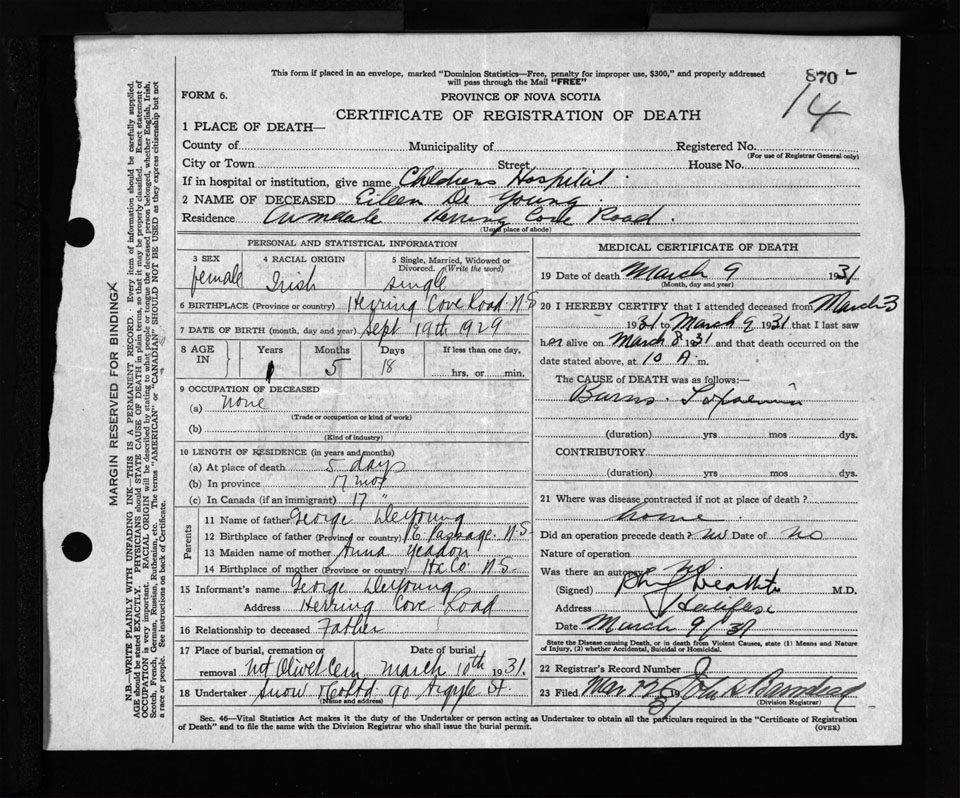 This form if placed in an envelope, marked "Dominion Statistics—Free, penalty for improper use, $300," and properly addressed
will pass through the Mail "FREE"
870
14
FORM 6.
PROVINCE OF NOVA SCOTIA
CERTIFICATE OF REGISTRATION OF DEATH
1 PLACE OF DEATH—
County of Municipality of Registered No.
(For use of Registrar General only)
City or Town Street House No.
If in hospital or institution, give name Childrens Hospital
2 NAME OF DECEASED Eileen De Young
Residence Armdale Herring Cove Road.
(Usual place of abode)
PERSONAL AND STATISTICAL INFORMATION
3 SEX 4 RACIAL ORIGIN 5 Single, Married, Widowed or
Divorced. (Write the word)
female Irish single
6 BIRTHPLACE (Province or country) Herring Cove Road. N S
7 DATE OF BIRTH (month, day and year) Sept 19th 1929
8 AGE IN Years Months Days If less than one day,
1 5 18 hrs. or min.
9 OCCUPATION OF DECEASED
(a) none
(Trade or occupation or kind of work)
(b)
(Kind of industry)
10 LENGTH OF RESIDENCE (in years and months)
(a) At place of death 5 days
(b) In province 17 mos
(c) In Canada (if an immigrant) 17 "
Parents
11 Name of father George DeYoung
12 Birthplace of father (Province or country) E. Passage. N.S
13 Maiden name of mother Anna Yeadon
14 Birthplace of mother (Province or country) Hx Co N S
15 Informant's name George DeYoung
Address Herring Cove Road
16 Relationship to deceased Father
17 Place of burial, cremation or removal Date of burial
Mt Olivet Cem March 10th 1931.
18 Undertaker Snow & Co Ltd 90 Argyle St.
(Name and address)
MEDICAL CERTIFICATE OF DEATH
19 Date of death March 9 1931
(Month, day and year)
20 I HEREBY CERTIFY that I attended deceased from March 3
1931 to March 9 1931 that I last saw
her alive on March 8 1931 and that death occurred on the
date stated above, at 10 A m.
The CAUSE OF DEATH was as follows:—
Burns. Toxaemia
(duration) yrs mos dys.
CONTRIBUTORY
(duration) yrs mos dys.
21 Where was disease contracted if not at place of death?
home
Did an operation precede death? no Date of no
Nature of operation
Was there an autopsy? no
(Signed) M.D.
Address Halifax
Date March 9/31
State the Disease causing Death, or in death from Violent Causes, state (1) Means and Nature
of Injury, (2) whether Accidental, Suicidal or Homicidal.
22 Registrar's Record Number
23 Filed Mar 1931 John
(Division Registrar)
Sec. 46—Vital Statistics Act makes it the duty of the Undertaker or person acting as Undertaker to obtain all the particulars required in the "Certificate of Registration
of Death" and to file the same with the Division Registrar who shall issue the burial permit.
(OVER)
MARGIN RESERVED FOR BINDING
N.B.—WRITE PLAINLY WITH UNFADING INK—THIS IS A PERMANENT RECORD. Every item of information should be carefully supplied.
AGE should be stated EXACTLY. PHYSICIANS should STATE CAUSE OF DEATH in plain terms, so that it may be properly classified. Exact statement of
OCCUPATION is very important. RACIAL ORIGIN will be described by stating to what people or tongue the deceased person belonged, whether English, Irish,
Scotch, French, German, Russian, Ruthenian, etc. The terms "AMERICAN" or "CANADIAN" SHOULD NOT BE USED as they express citizenship but not
a race or people. See instructions on back of Certificate.